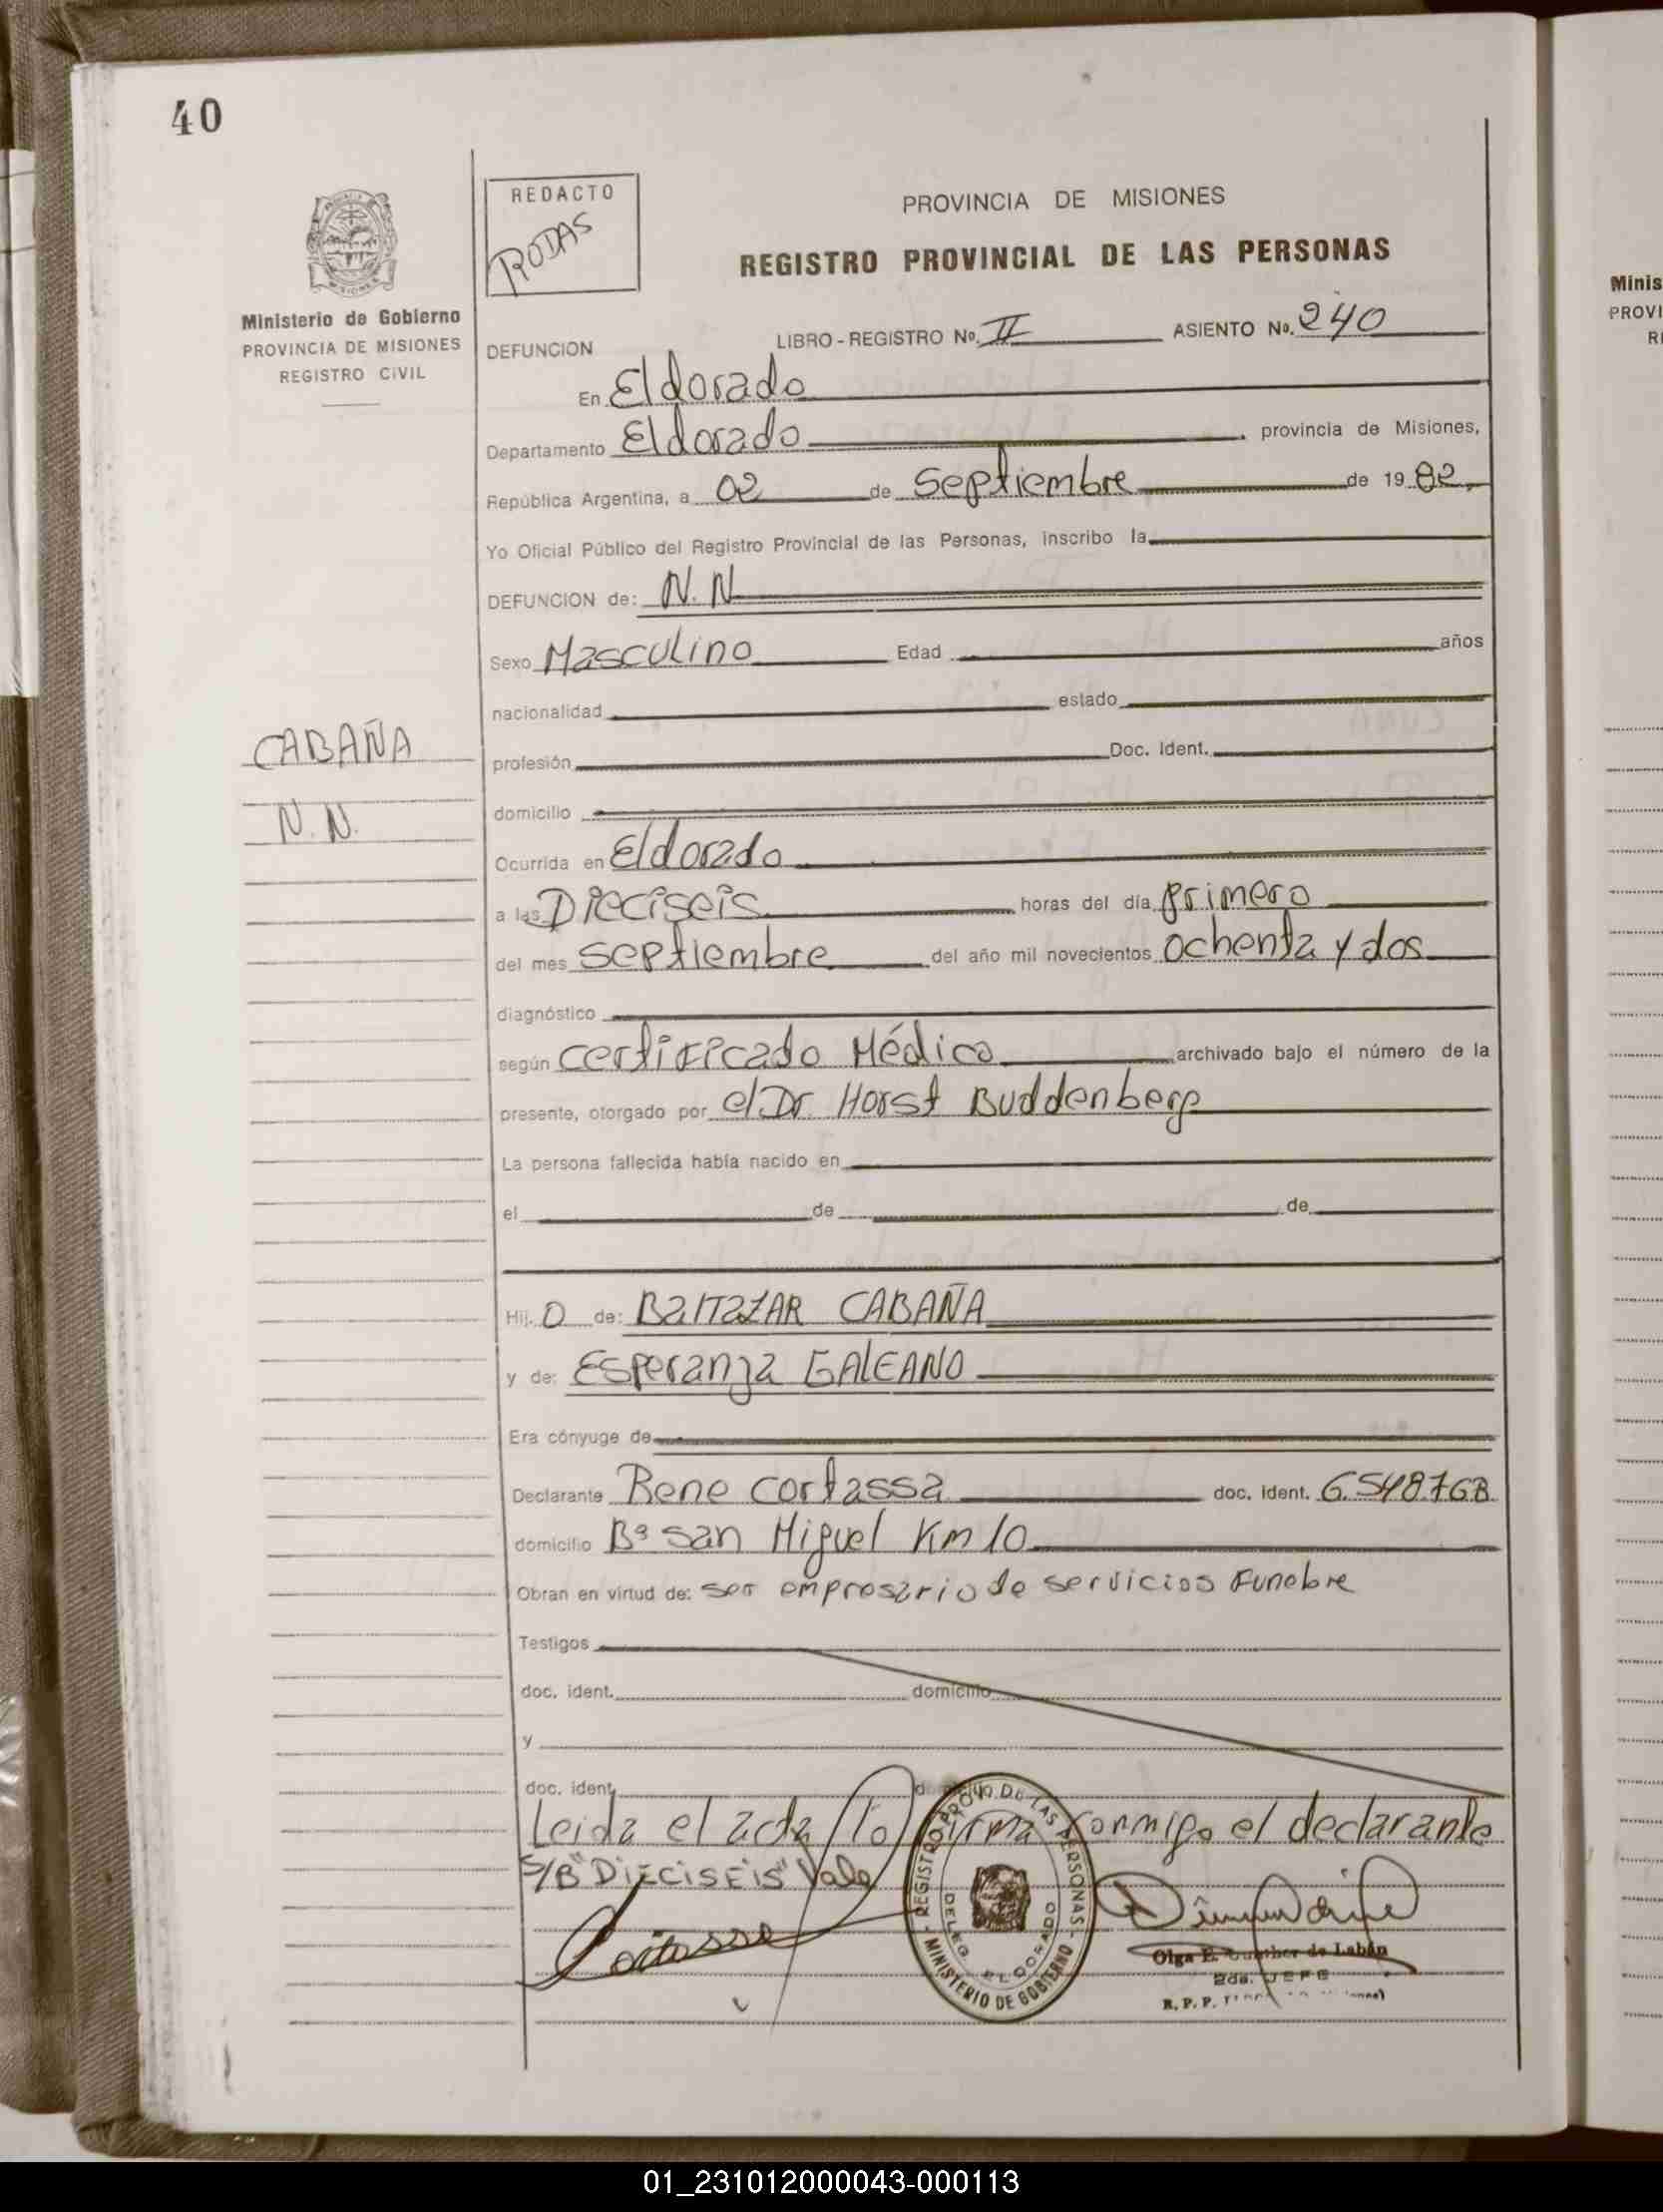 40
REDACTO
RODAS
PROVINCIA DE MISIONES
REGISTRO PROVINCIAL DE LAS PERSONAS
Ministerio de Gobierno
PROVINCIA DE MISIONES
REGISTRO CIVIL
LIBRO - REGISTRO No. II ASIENTO No. 240
DEFUNCION
En Eldorado
Departamento Eldorado, provincia de Misiones,
República Argentina, a 02 de Septiembre de 1982,
Yo Oficial Público del Registro Provincial de las Personas, inscribo la
DEFUNCION de: N. N
Sexo Masculino Edad años
nacionalidad estado
CABAÑA
profesión Doc. Ident.
N. N.
domicilio
Ocurrida en Eldorado
a las Dieciseis horas del día primero
del mes septiembre del año mil novecientos ochenta y dos
diagnóstico
según certificado Médico archivado bajo el número de la
presente, otorgado por el Dr. Horst Buddenberg
La persona fallecida había nacido en
el de de
Hij. O de: BalTaZAR CABAÑA
y de: Esperanza GALEANO
Era cónyuge de
Declarante Rene Cortassa doc. ident. 6.548.768
domicilio Bº San Miguel Km 10
Obran en virtud de: ser empresario de servicios Funebre
Testigos
doc. ident. domicilio
y
doc. ident.
Leida el acta lo firma conmigo el declarante
S/B "DIECISEIS" Vale
Cortassa
REGISTRO PROV. DE LAS PERSONAS
DELEG. ELDORADO
MINISTERIO DE GOBIERNO
Olga E. Gunther de Labán
2da. JEFE
R. P. P.
Minis
PROVI
RE
01_231012000043-000113